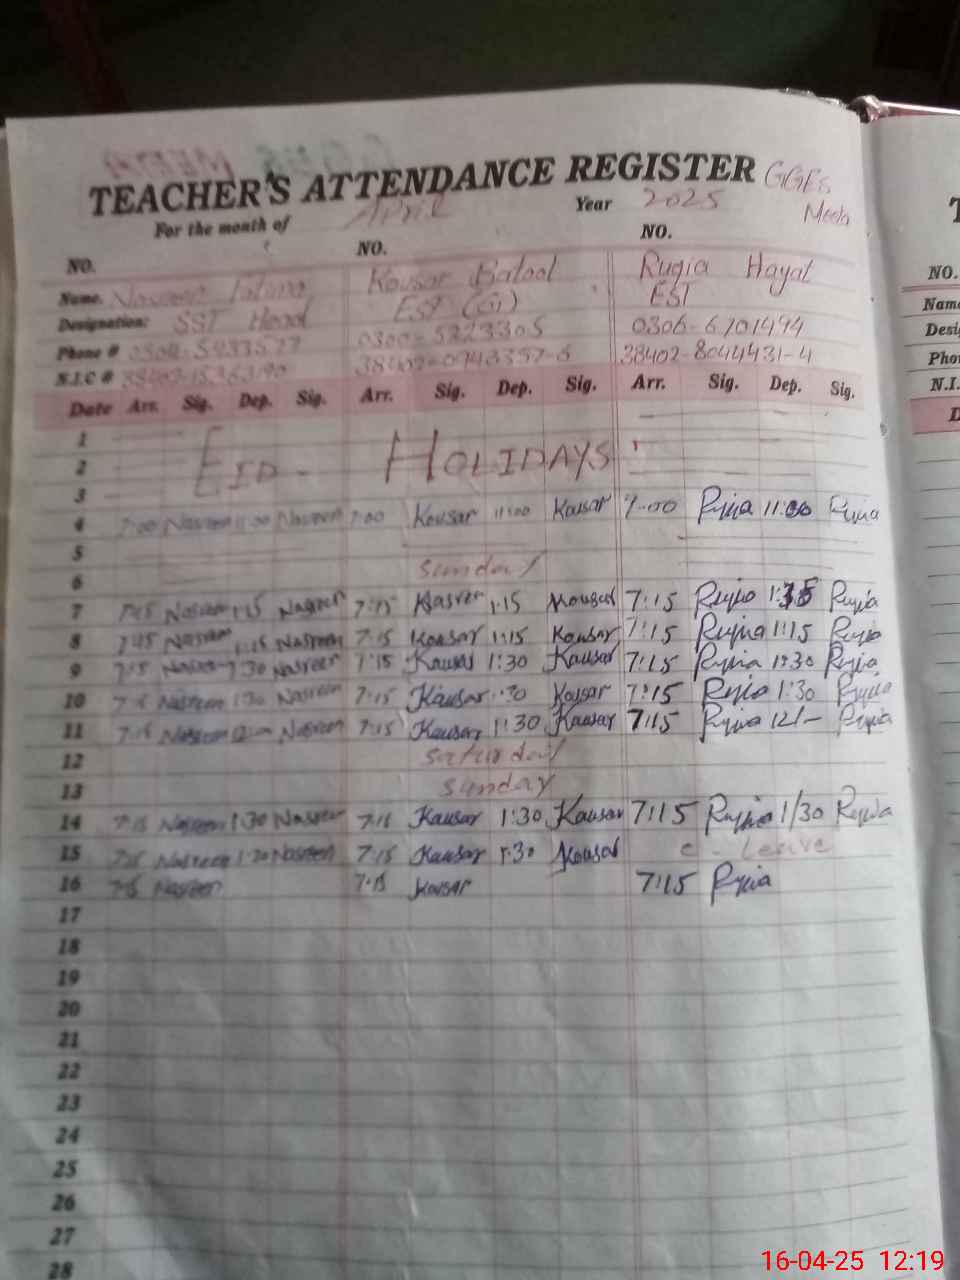 TEACHER'S ATTENDANCE REGISTER GGES
For the month of April Year 2025 Meela
NO. NO. NO.
Name. Nasreen Fatima Kousar Batool Ruqia Hayat
Designation: SST Head EST (G) EST
Phone # 0300-5323305 0306-6701494
N.I.C # 38402-8044431-4
Date Arr. Sig. Dep. Sig. Arr. Sig. Dep. Sig. Arr. Sig. Dep. Sig.
1
2 EID - HOLIDAYS
3
4 7:00 Nasreen 11:00 Nasreen 7:00 Kousar 11:00 Kousar 7:00 Ruqia 11:00 Ruqia
5
6 Sunday
7 Nasreen 1:15 Nasreen 7:15 1:15 Kousar 7:15 Ruqia Ruqia
8 Nasreen 1:15 Nasreen 7:15 Kousar 1:15 Kousar 7:15 Ruqia 1:15 Ruqia
9 7:15 Nasreen 1:30 Nasreen 7:15 Kausar 1:30 Kausar 7:15 Ruqia 1:30 Ruqia
10 7:15 Nasreen 1:30 Nasreen 7:15 Kausar 1:30 Kousar 7:15 Ruqia 1:30 Ruqia
11 7:15 Nasreen Nasreen 7:15 Kausar 1:30 Kausar 7:15 Ruqia 12/- Ruqia
12 Saturday
13 Sunday
14 7:15 Nasreen 1:30 Nasreen 7:15 Kausar 1:30 Kausar 7:15 Ruqia 1/30 Ruqia
15 7:15 Nasreen 1:30 Nasreen 7:15 Kausar 1:30 Kousar c - Leave
16 7:15 Nasreen 7:15 Kousar 7:15 Ruqia
17
18
19
20
21
22
23
24
25
26
27
28
NO.
16-04-25 12:19